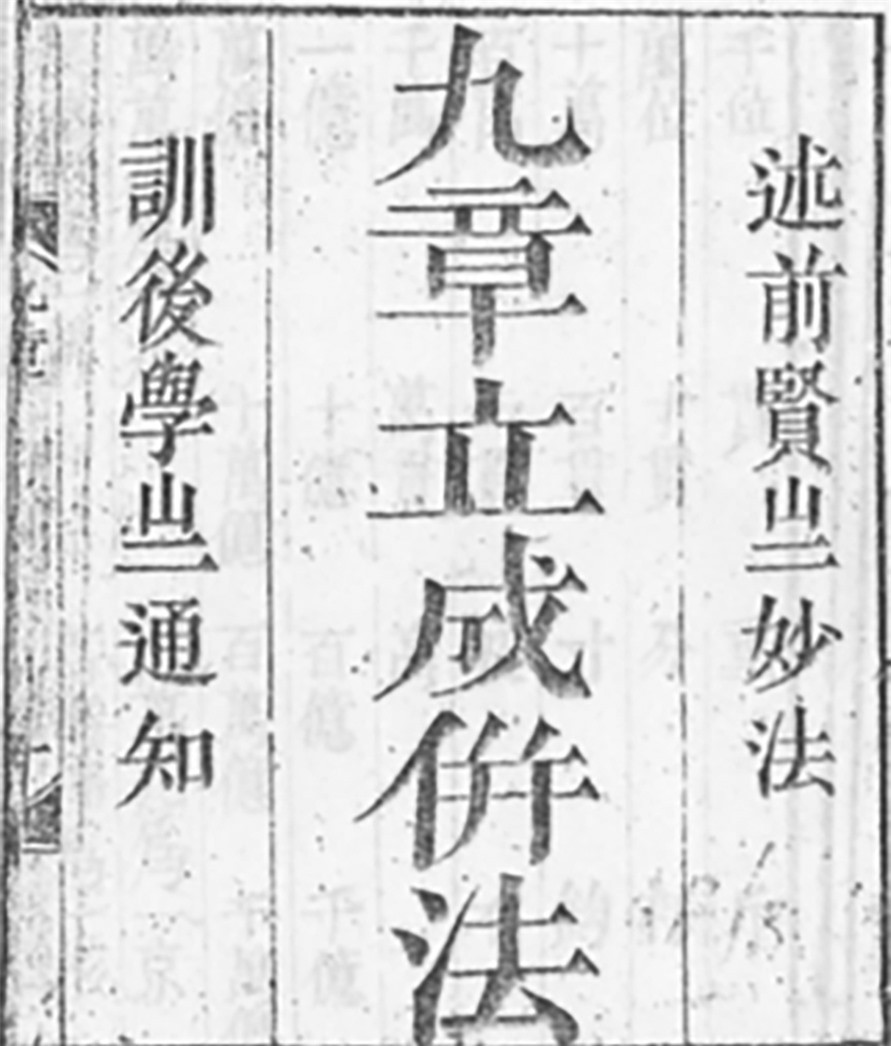 述前賢㞢妙法
九章立成併法
訓後學㞢通知